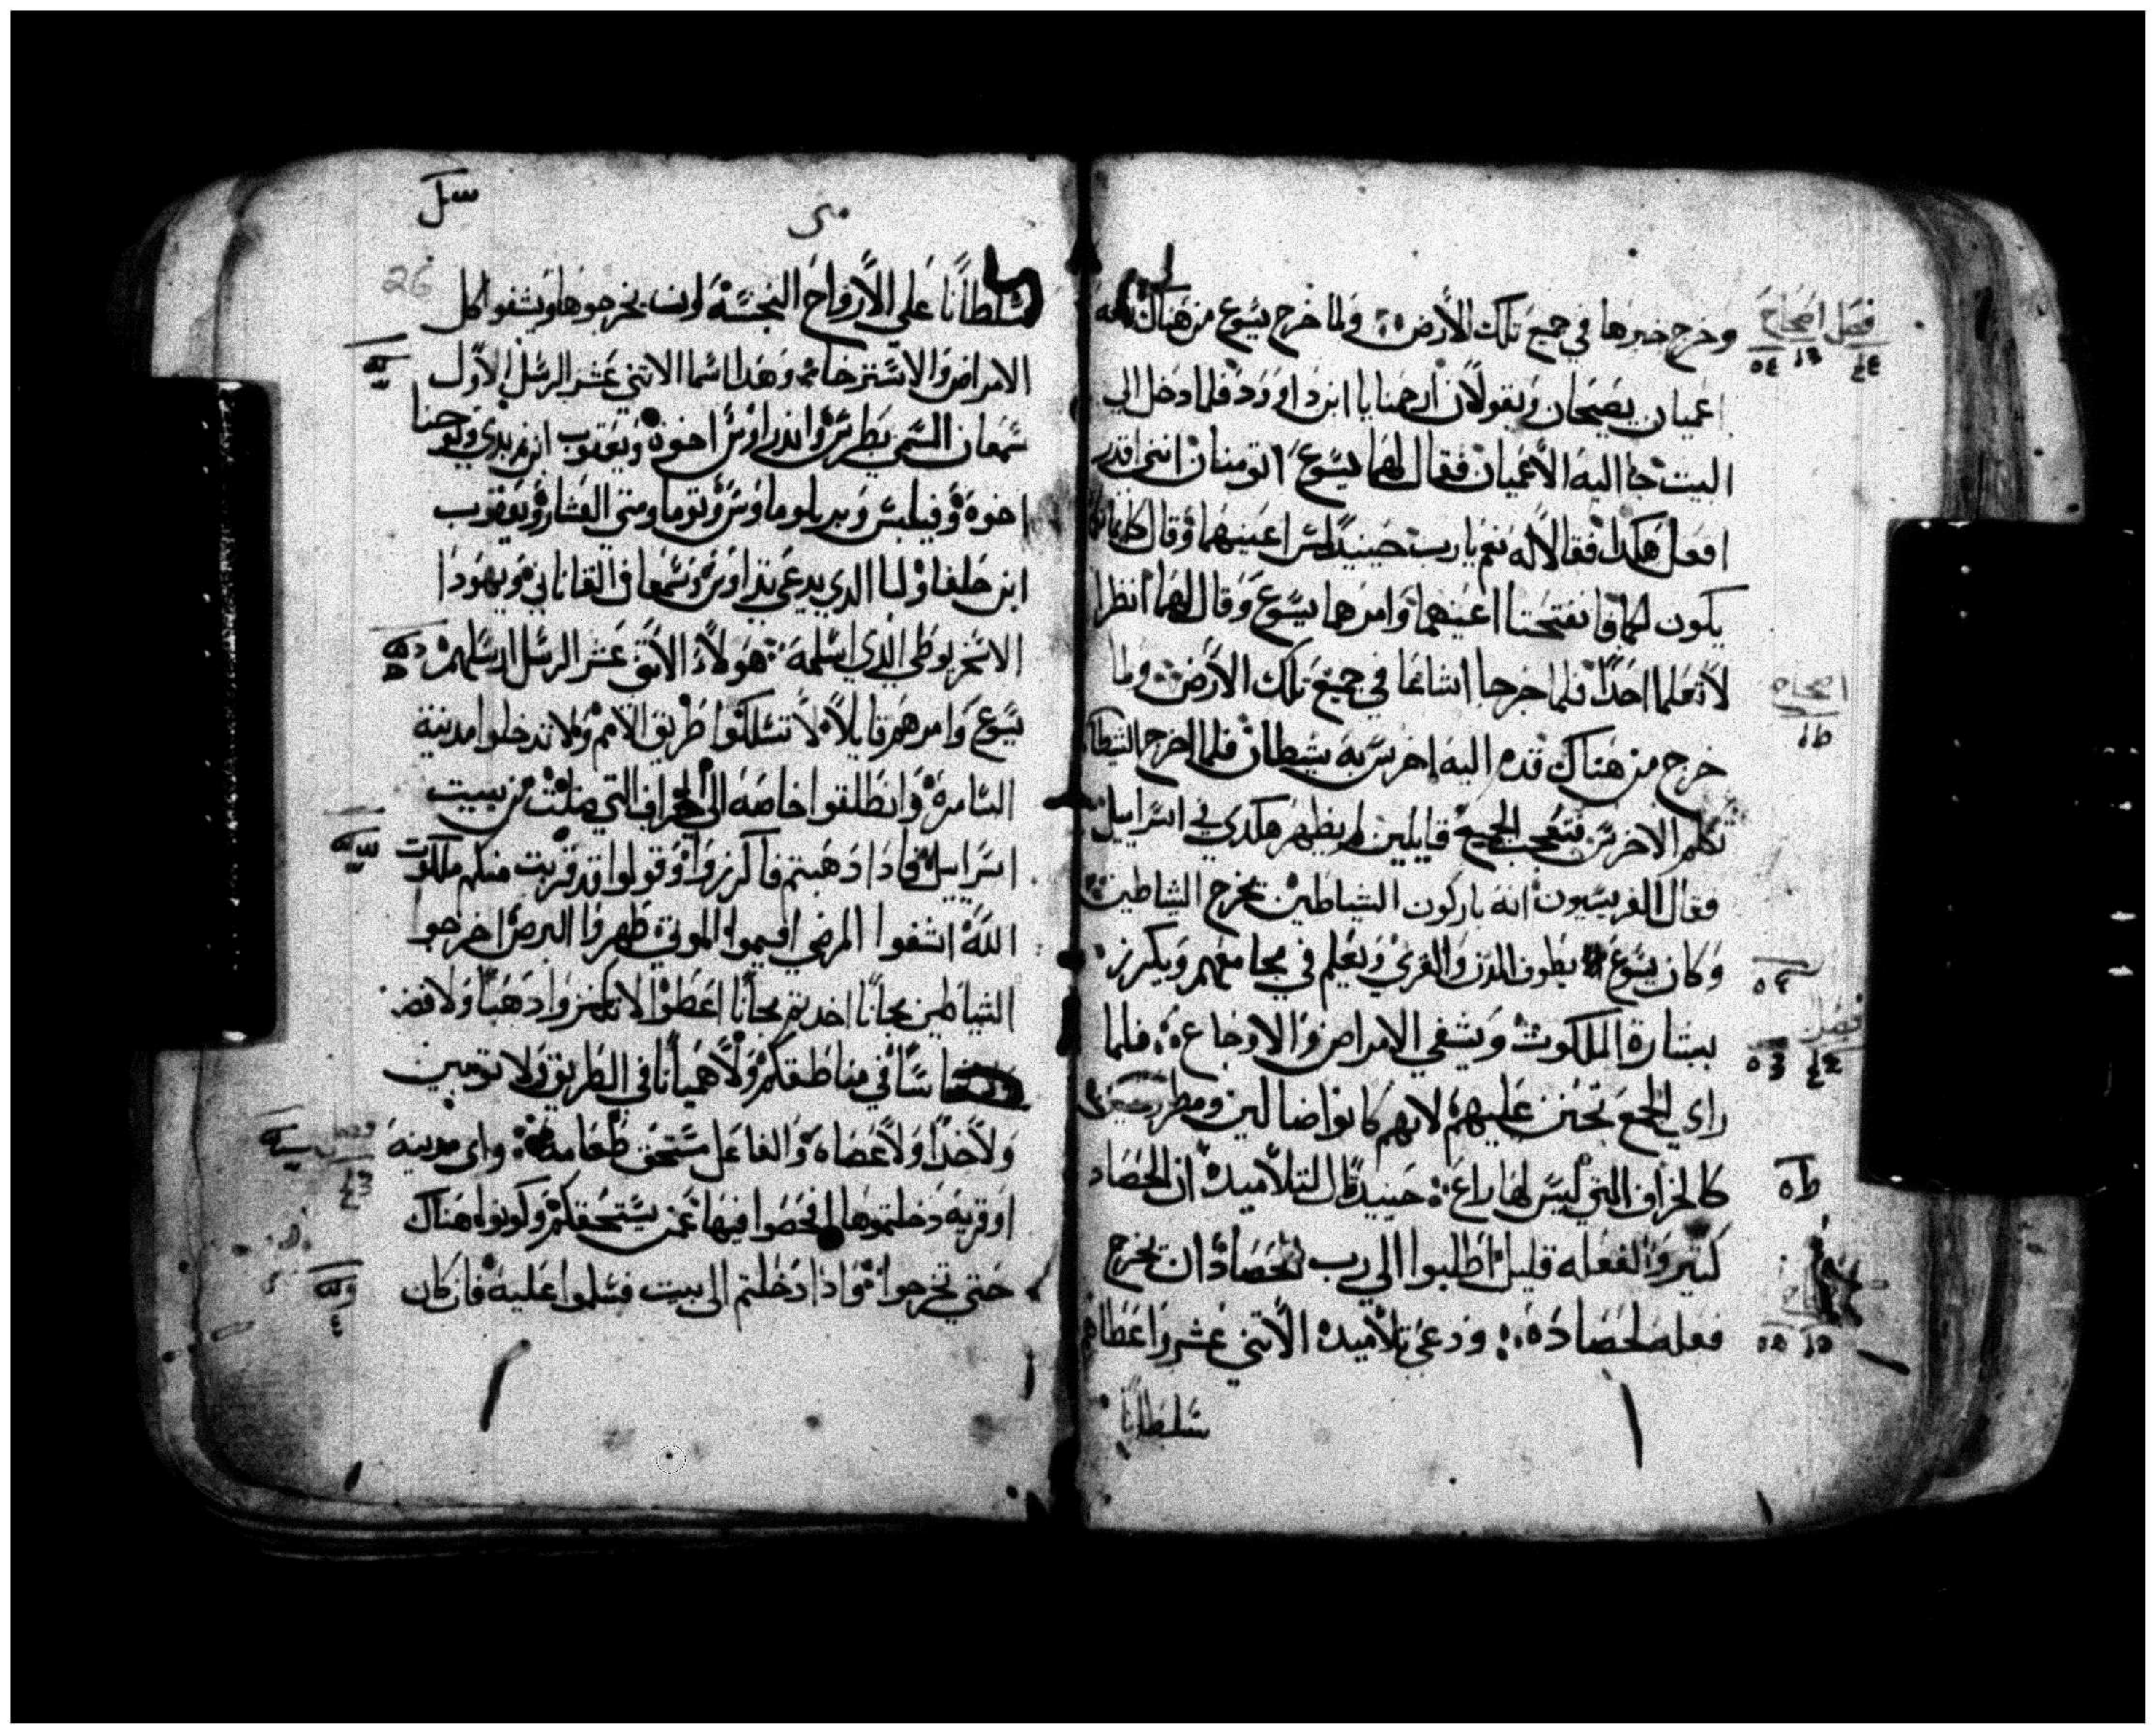 وخرج خبرها في جميع تلك الأرض ولما خرج يسوع من هناك تبعه
اعميان يصيحان ويقولان ارحمنا يا ابن داوود فلما دخل الي
البيت جا اليه الأعميان فقال لهما يسوع اتومنان انني اقدر
افعل هكذا فقالا له نعم يارب حينيدٍ لمس اعينهما وقال كايمانكما
يكون لكما فانفتحتا اعينهما وامرهما يسوع وقال لهما انظرا
لا تعلما احدًا فلما خرجا اشاعا في جميع تلك الأرض وما
خرج من هناك قدم اليه اخرس به شيطان فلما اخرج الشيطان
تكلم الاخرس فتعجب الجميع قايلين لم يظهر هكدي في اسراييل
فقال الفريسيون انه باركون الشياطين يخرج الشياطين
وكان يسوع يطوف المدن والقري ويعلم في مجامعهم ويكرز
ببشارة الملكوت ويشفي الامراض والاوجاع فلما
راي الجمع تحنن عليهم لانهم كانوا ضالين ومطروحين
كالخراف التي ليس لها راعٍ حينيد قال لتلاميده ان الحصاد
كتير والفعله قليل اطلبوا الي رب الحصاد ان يخرج
فعله لحصاده ودعي تلاميده الأتني عشر واعطاهم
سلطانًا
سلطانًا علي الأرواح النجسه لان يخرجوها ويشفوا كل
الامراض والاسترخا وهدا اسما الاتني عشر الرسل الأول
سمعان المسمي بطرس واندراوس اخوه ويعقوب ابن زبدي ويوحنا
اخوه وفيلبس وبرتلوماوس وتوما ومتي العشار ويعقوب
ابن حلفا ولبا الدي يدعي تداوس وسمعان القاناني ويهودا
الاسخريوطي الدي اسلمه هولاء الأتني عشر الرسل ارسلهم
يسوع وامرهم قايلاً لا تسلكوا طريق الامم ولا تدخلوا مدينة
السامره وانطلقوا خاصه الي الخراف التي ضلت من بيت
اسراييل فادا دهبتم فاكرزوا وقولوا قد قربت منكم ملكوت
الله اشفوا المرضي اقيموا الموتي طهروا البرص اخرجوا
الشياطين مجانًا اخدتم مجانًا اعطوا لا تكنزوا دهبًا ولا فضه
ولا نحاسًا في مناطقكم ولا هميانا في الطريق ولا توبين
ولا حدا ولا عصاه والفاعل مستحق طعامه واي مدينه
او قريه دخلتموها افحصوا فيها عمن يستحقكم وكونوا هناك
حتي تخرجوا وادا دخلتم الي بيت فسلموا عليه فان كان
26